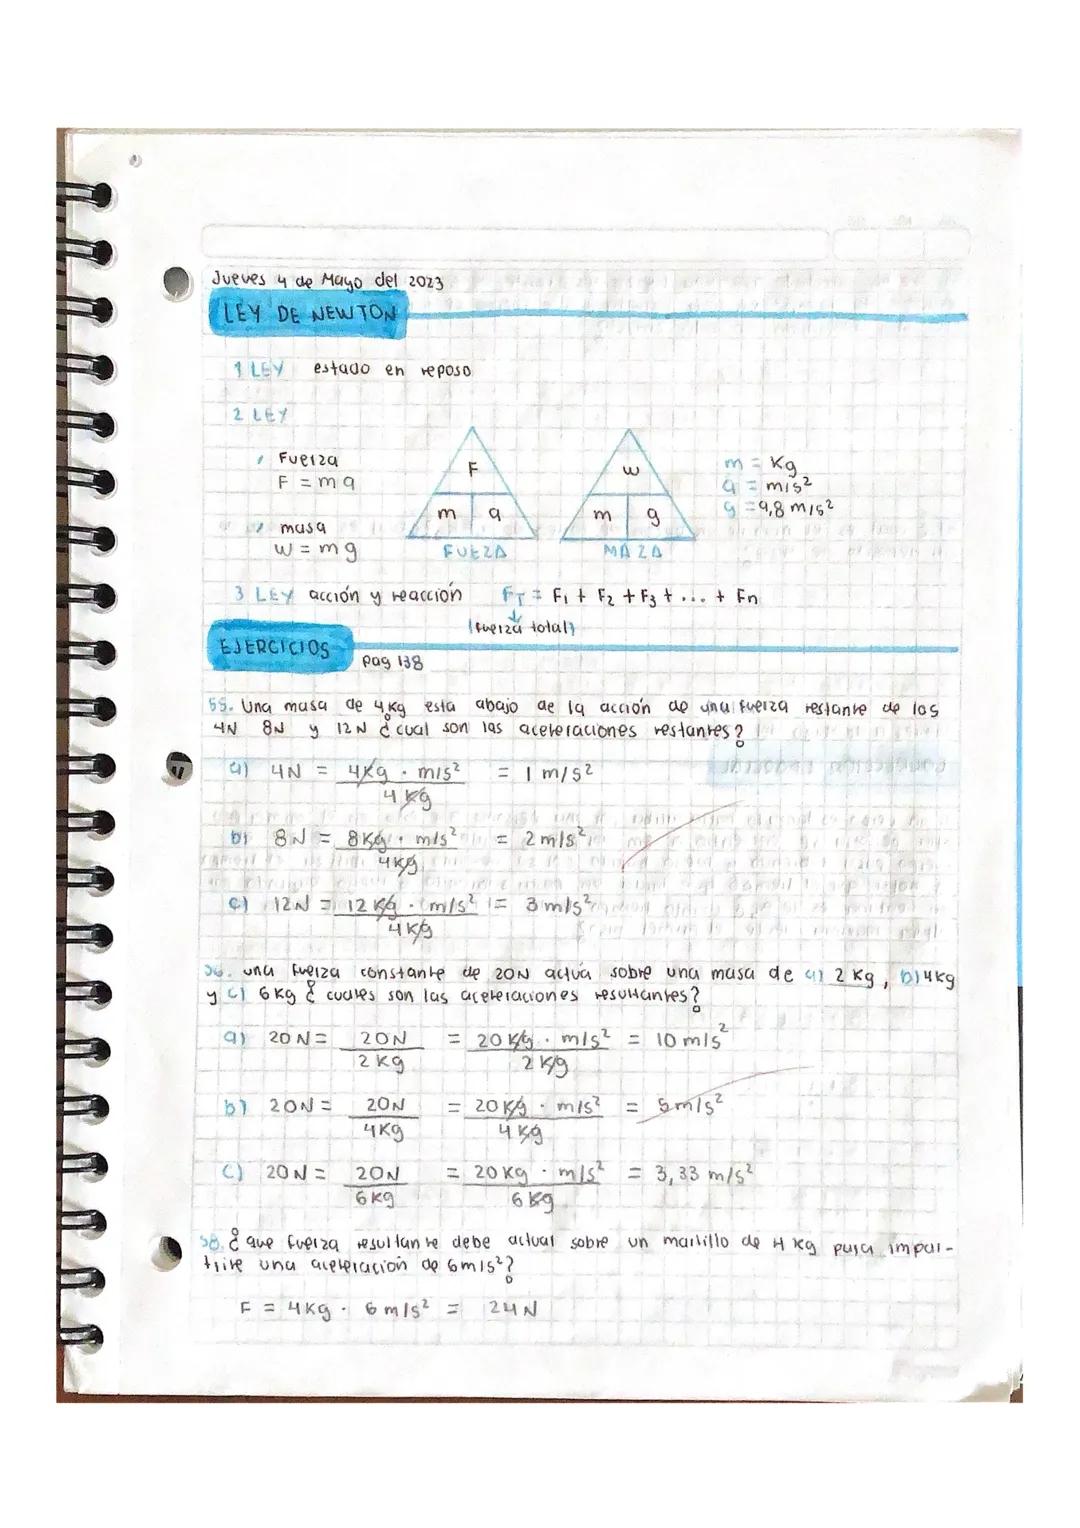 Jueves 4 de Mayo del 2023
LEY DE NEWTON
1 LEY estado en reposo
2 LEY
Fuerza
F = m a
masa
W = m g
F
m a
FUEZA
W
m g
MAZA
m = Kg
a = m/s²
g = 9,8 m/s²
3 LEY acción y reacción FT = F1 + F2 + F3 + ... + Fn
(fuerza total)
EJERCICIOS
pag 138
55. Una masa de 4kg esta abajo de la acción de una fuerza restante de los
4N 8N y 12N ¿cual son las aceleraciones restantes?
a) 4N = 4Kg . m/s² / 4Kg = 1 m/s²
b) 8N = 8Kg . m/s² / 4Kg = 2 m/s²
c) 12N = 12Kg . m/s² / 4Kg = 3 m/s²
56. una fuerza constante de 20N actúa sobre una masa de a) 2 Kg, b) 4Kg
y c) 6Kg ¿ cuales son las aceleraciones resultantes?
a) 20N = 20N / 2Kg = 20Kg . m/s² / 2Kg = 10 m/s²
b) 20N = 20N / 4Kg = 20Kg . m/s² / 4Kg = 5 m/s²
c) 20N = 20N / 6Kg = 20Kg . m/s² / 6Kg = 3,33 m/s²
58. ¿ que fuerza resultante debe actuar sobre un martillo de 4 Kg para impar-
tirle una aceleración de 6m/s²?
F = 4Kg . 6 m/s² = 24N